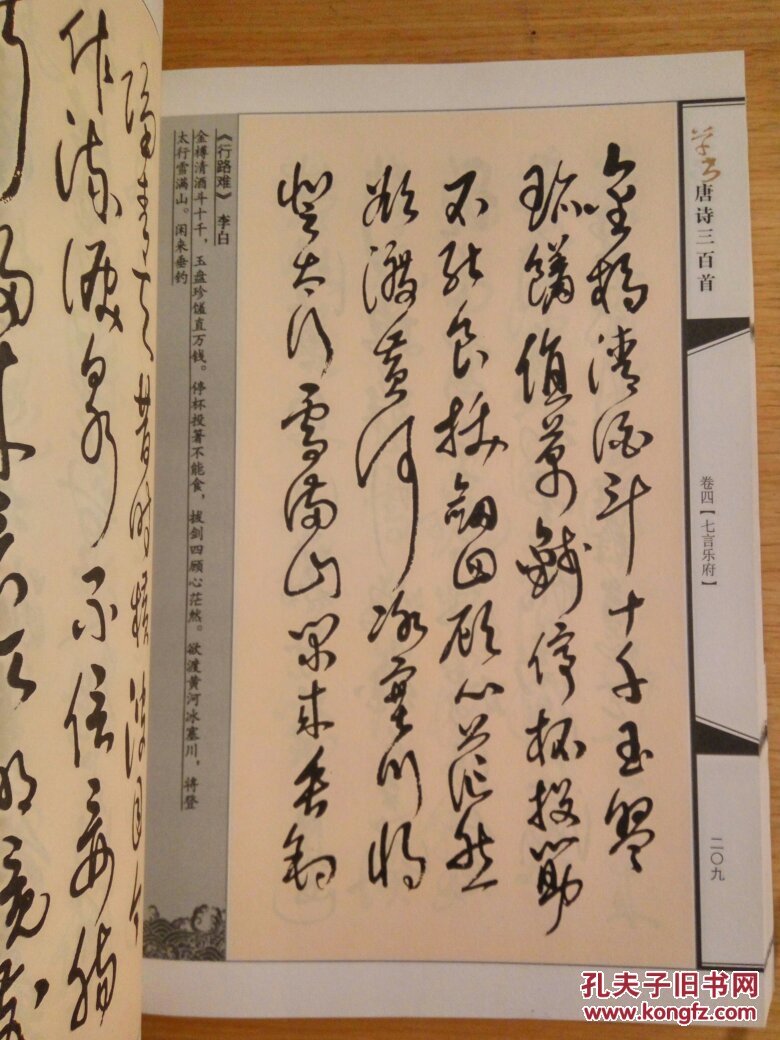 草书唐诗三百首
卷四【七言乐府】
二〇九
金樽清酒斗十千玉盘
珍馐值万钱停杯投箸
不能食拔剑四顾心茫然
欲渡黄河冰塞川将
登太行雪满山闲来垂钓
《行路难》 李白
金樽清酒斗十千，玉盘珍馐直万钱。停杯投箸不能食，拔剑四顾心茫然。欲渡黄河冰塞川，将登
太行雪满山。闲来垂钓
隔青天昔时横波目今
作流泪泉不信妾肠
断归来看取明镜前
孔夫子旧书网
www.kongfz.com